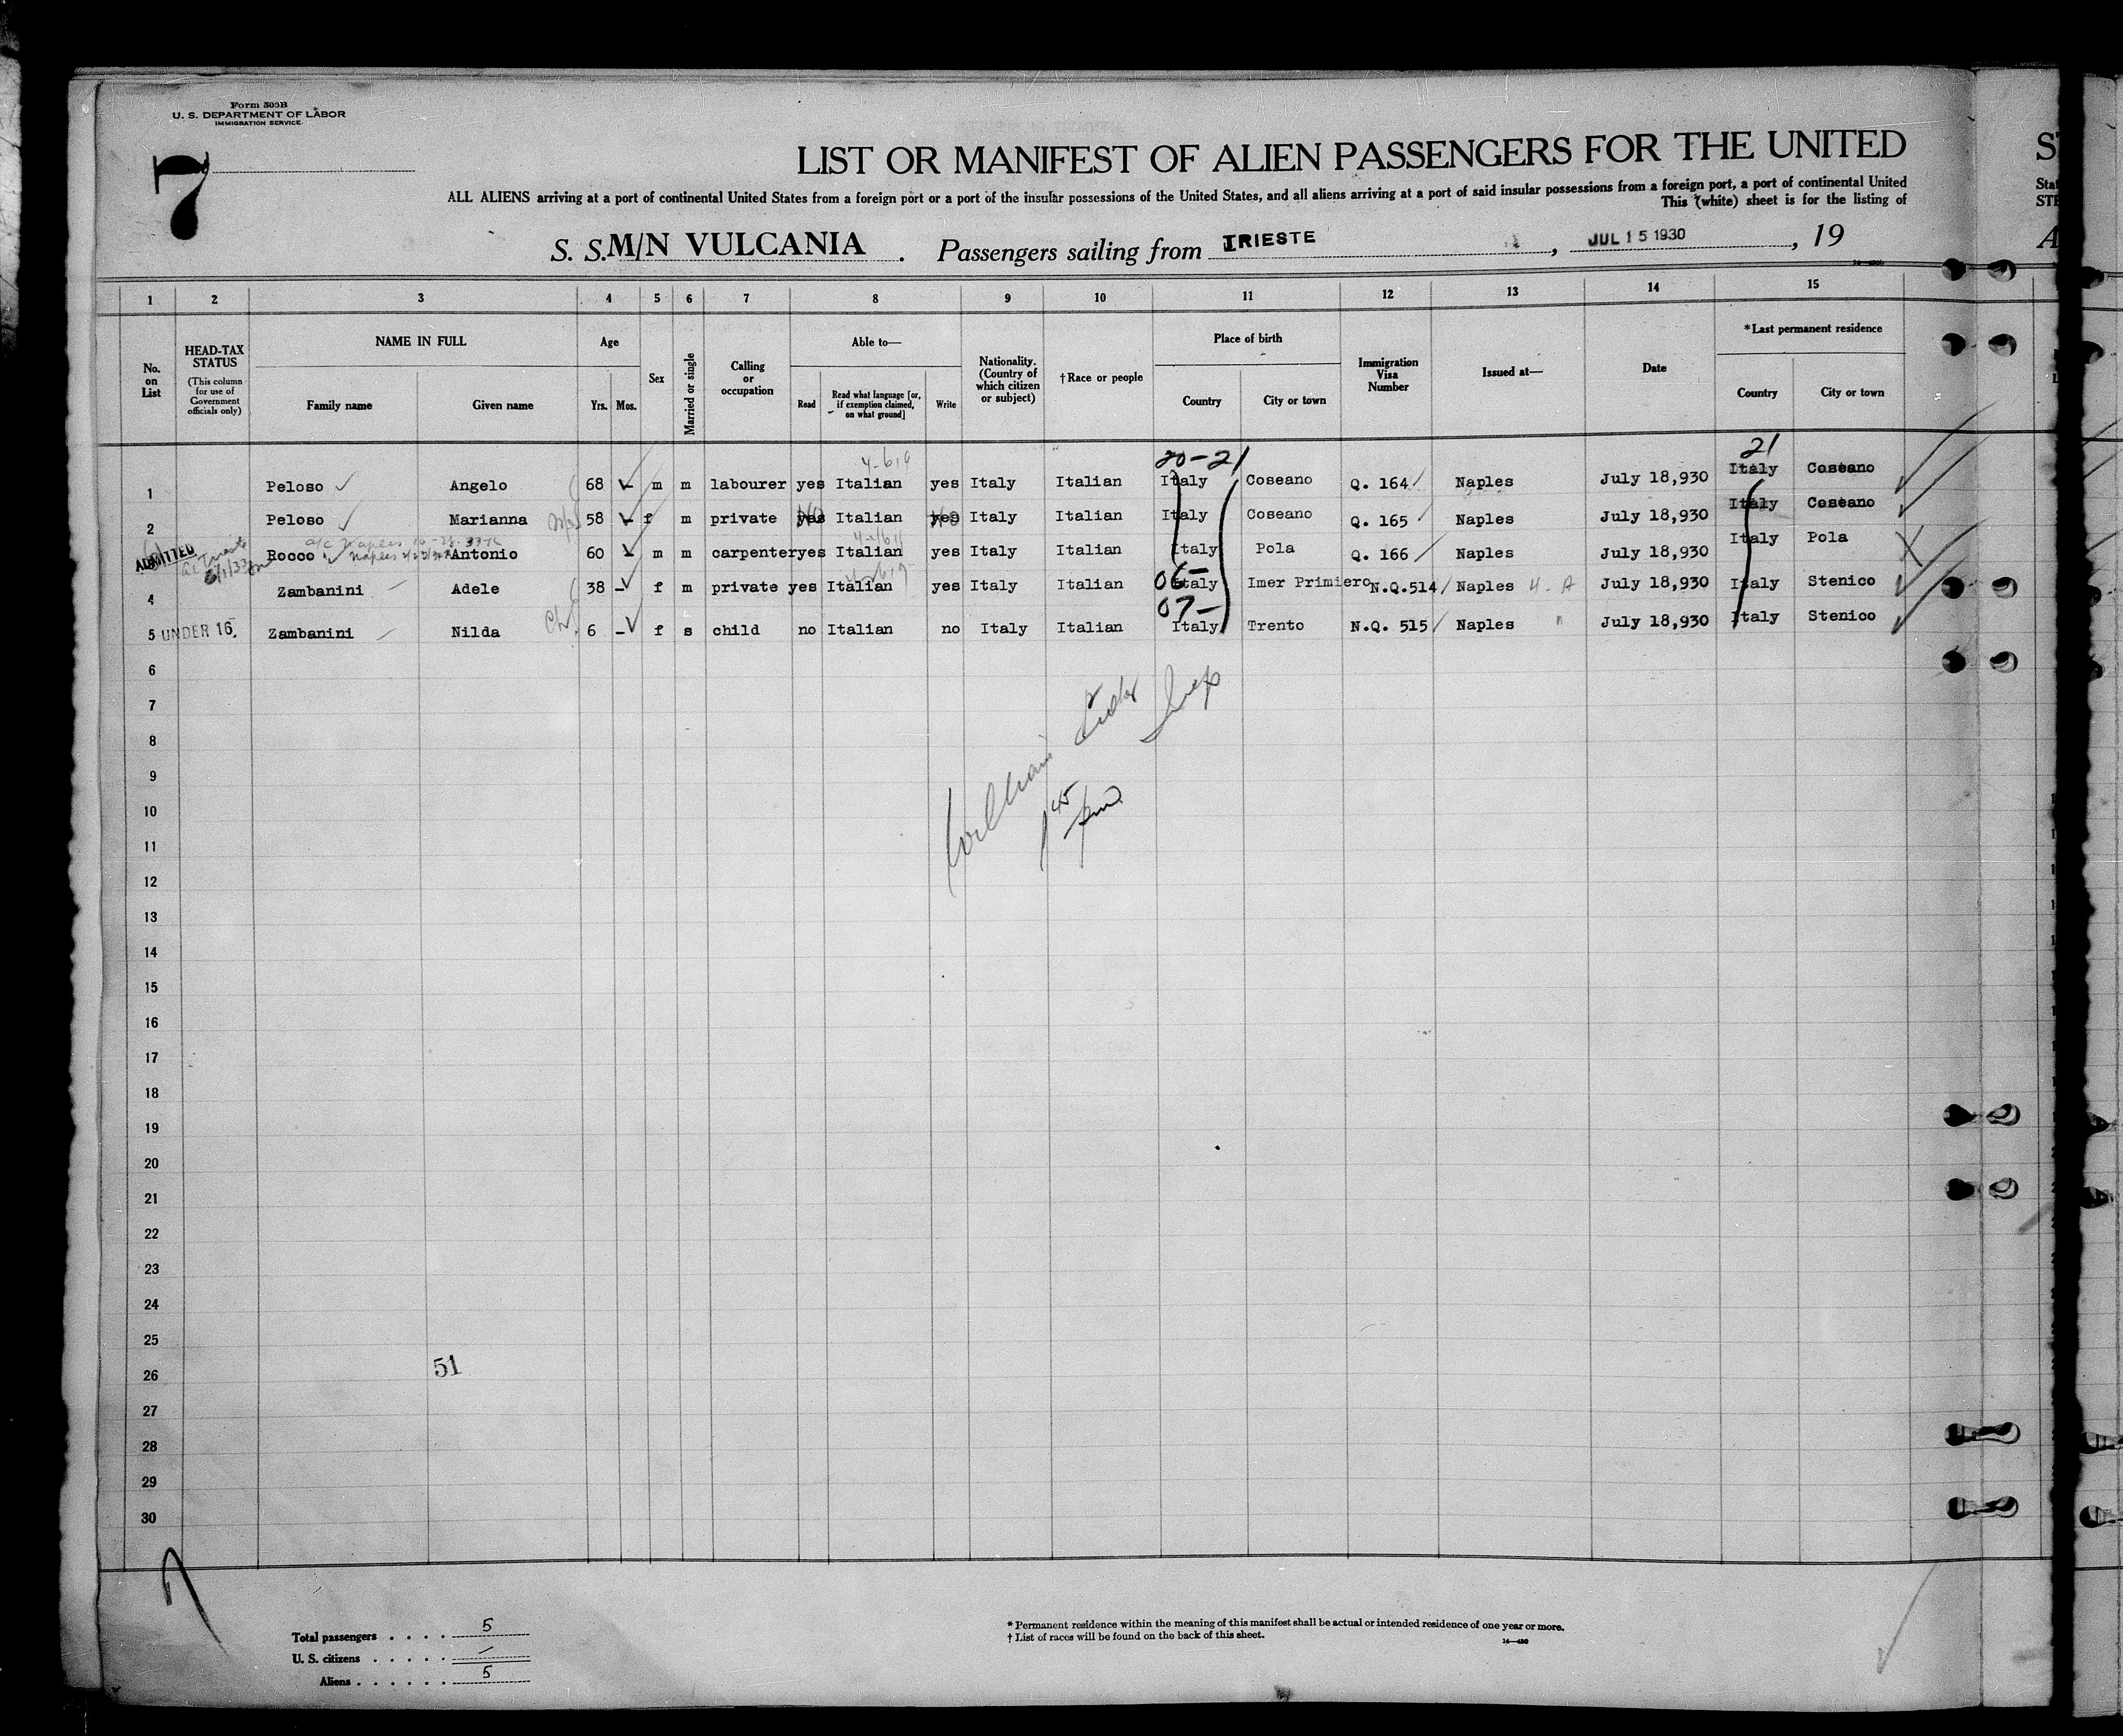 Form 500B
U. S. DEPARTMENT OF LABOR
IMMIGRATION SERVICE
7
LIST OR MANIFEST OF ALIEN PASSENGERS FOR THE UNITED
ALL ALIENS arriving at a port of continental United States from a foreign port or a port of the insular possessions of the United States, and all aliens arriving at a port of said insular possessions from a foreign port, a port of continental United
This (white) sheet is for the listing of
S. S. M/N VULCANIA . Passengers sailing from TRIESTE , JUL 15 1930 , 19
1 2 3 4 5 6 7 8 9 10 11 12 13 14 15
No. on List
HEAD-TAX STATUS
(This column for use of Government officials only)
NAME IN FULL
Family name Given name
Age
Yrs. Mos.
Sex
Married or single
Calling or occupation
Able to—
Read
Read what language [or, if exemption claimed, on what ground]
Write
Nationality. (Country of which citizen or subject)
†Race or people
Place of birth
Country City or town
Immigration Visa Number
Issued at—
Date
*Last permanent residence
Country City or town
20-21 21
1 Peloso Angelo 68 m m labourer yes Italian yes Italy Italian Italy Coseano Q. 164 Naples July 18,930 Italy Coseano
2 Peloso Marianna 58 f m private yes Italian yes Italy Italian Italy Coseano Q. 165 Naples July 18,930 Italy Coseano
ADMITTED Rocco Antonio 60 m m carpenter yes Italian yes Italy Italian Italy Pola Q. 166 Naples July 18,930 Italy Pola
06-
4 Zambanini Adele 38 - f m private yes Italian yes Italy Italian Italy Imer Primiero N.Q.514 Naples 4-A July 18,930 Italy Stenico
07-
5 UNDER 16 Zambanini Nilda 6 - f s child no Italian no Italy Italian Italy Trento N.Q. 515 Naples " July 18,930 Italy Stenico
6
7
8
9
10
11
12
13
14
15
16
17
18
19
20
21
22
23
24
25
26 51
27
28
29
30
Total passengers . . . . 5
U. S. citizens . . . . .
Aliens . . . . . . 5
* Permanent residence within the meaning of this manifest shall be actual or intended residence of one year or more.
† List of races will be found on the back of this sheet.